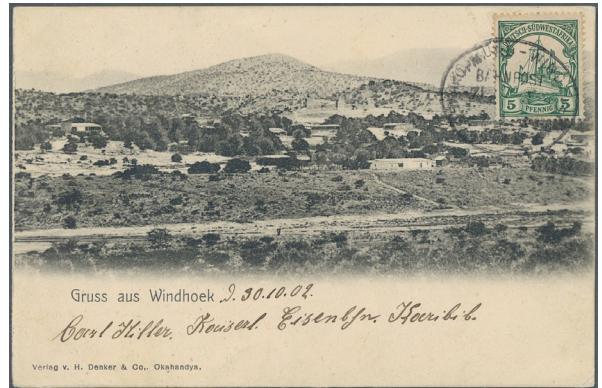 DEUTSCH-SÜDWESTAFRIKA
5 PFENNIG 5
BAHNPOST
Gruss aus Windhoek, d. 30.10.02.
Carl Hiller. Kaiserl. Eisenbhn. Karibib.
Verlag v. H. Denker & Co., Okahandya.